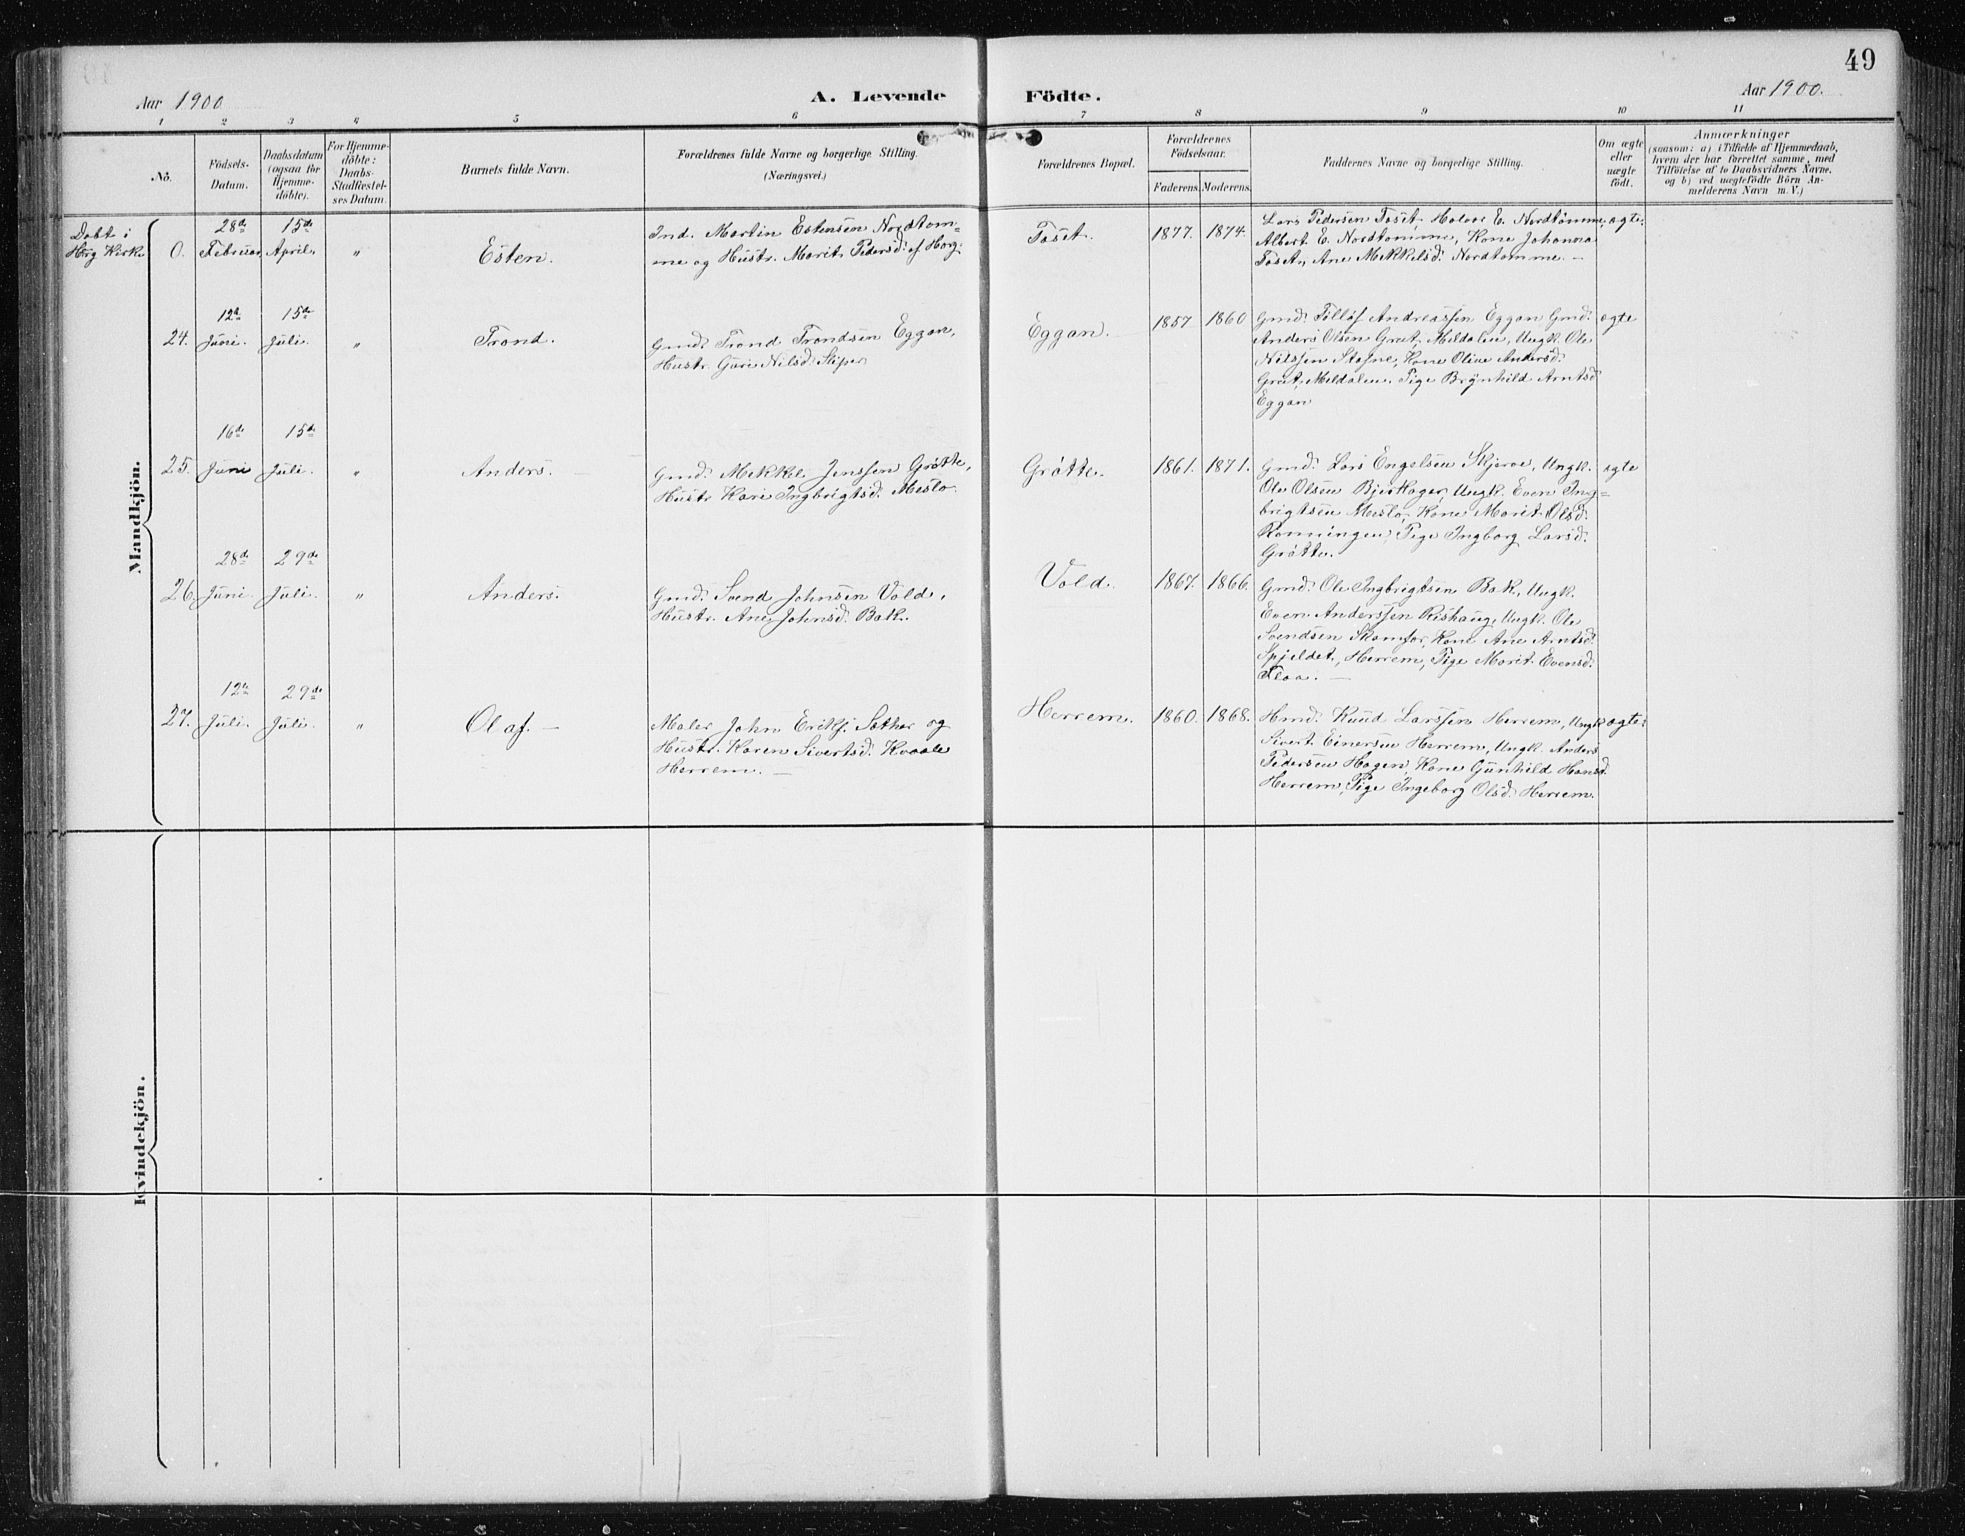 49
Aar 1900
A. Levende Födte.
Aar 1900.
1 2 3 4 5 6 7 8 9 10 11
No.
Födsels-
Datum.
Daabsdatum
(ogsaa for
Hjemme-
döbte).
For Hjemme-
döbte:
Daabs-
Stadfæstel-
ses Datum.
Barnets fulde Navn.
Forældrenes fulde Navne og borgerlige Stilling.
(Næringsvei.)
Forældrenes Bopæl.
Forældrenes
Födselsaar.
Faderens. Moderens.
Faddernes Navne og borgerlige Stilling.
Om ægte
eller
uægte
födt.
Anmærkninger
(saasom: a) i Tilfælde af Hjemmedaab,
hvem der har forrettet samme, med
Tilföielse af to Daabsvidners Navne,
og b) ved uægtefödte Börn An-
melderens Navn m. V.)
Mandkjön.
Döbt i
Horg Kirke
0.
28de
Februar
15de
April.
"
Esten.
Ind. Martin Estensen Nordtöm-
me og Hustr. Marit Pedersd. af Horg.
Foset.
1877. 1874.
Lars Pedersen Foset, Halvor E. Nordtömme,
Albert E. Nordtömme, Kone Johanna
Foset, Ane Mikkelsd. Nordtömme. —
ægte.
24.
12te
Juni
15de
Juli.
"
Trond.
Gmd. Trond Trondsen Eggan,
Hustr. Guri Nilsd.
Eggan.
1857 1860
Gmd. Andreassen Eggan Gmd.
Anders Olsen Grut, Meldalen, Ungk. Ole
Nilssen Kone Oline Andersd.
Grut, Meldalen. Pige Brynhild Arntsd
Eggan
ægte
25.
16de
Juni
15de
Juli.
"
Anders.
Gmd. Mikkel Jenssen Grötte,
Hustr Kari Ingbrigtsd. Meslo.
Grötte.
1861. 1871.
Gmd. Lars Engelsen Skjerve, Ungk.
Ole Olsen Bjerkager, Ungk. Even Ing-
brigtsen Meslo, Kone Marit Olsd.
Rönningen, Pige Ingborg Larsd.
Grötte.
ægte
26.
28de
Juni.
29de
Juli.
"
Anders.
Gmd. Svend Johnsen Vold,
Hustr. Ane Johnsd. Bak.
Vold.
1867. 1866.
Gmd. Ole Ingbrigtsen Bak, Ungk.
Even Anderssen Rishaug, Ungk. Ole
Svendsen Skamfer, Kone Ane Arntsd.
Spjeldet, Herrem, Pige Marit Evensd.
Floa. —
27.
12te
Juli.
29de
Juli.
"
Olaf. —
Maler John Eriks. Sæther og
Hustr. Karen Sivertsd. Kvaale
Herrem. —
Herrem.
1860. 1868.
Hmd. Knud Larssen Herrem, Ungk.
Sivert Einersen Herrem, Ungk. Anders
Pedersen Hagen, Kone Gunhild Hansd.
Herrem, Pige Ingeborg Olsd. Herrem.
ægte.
Kvindekjön.